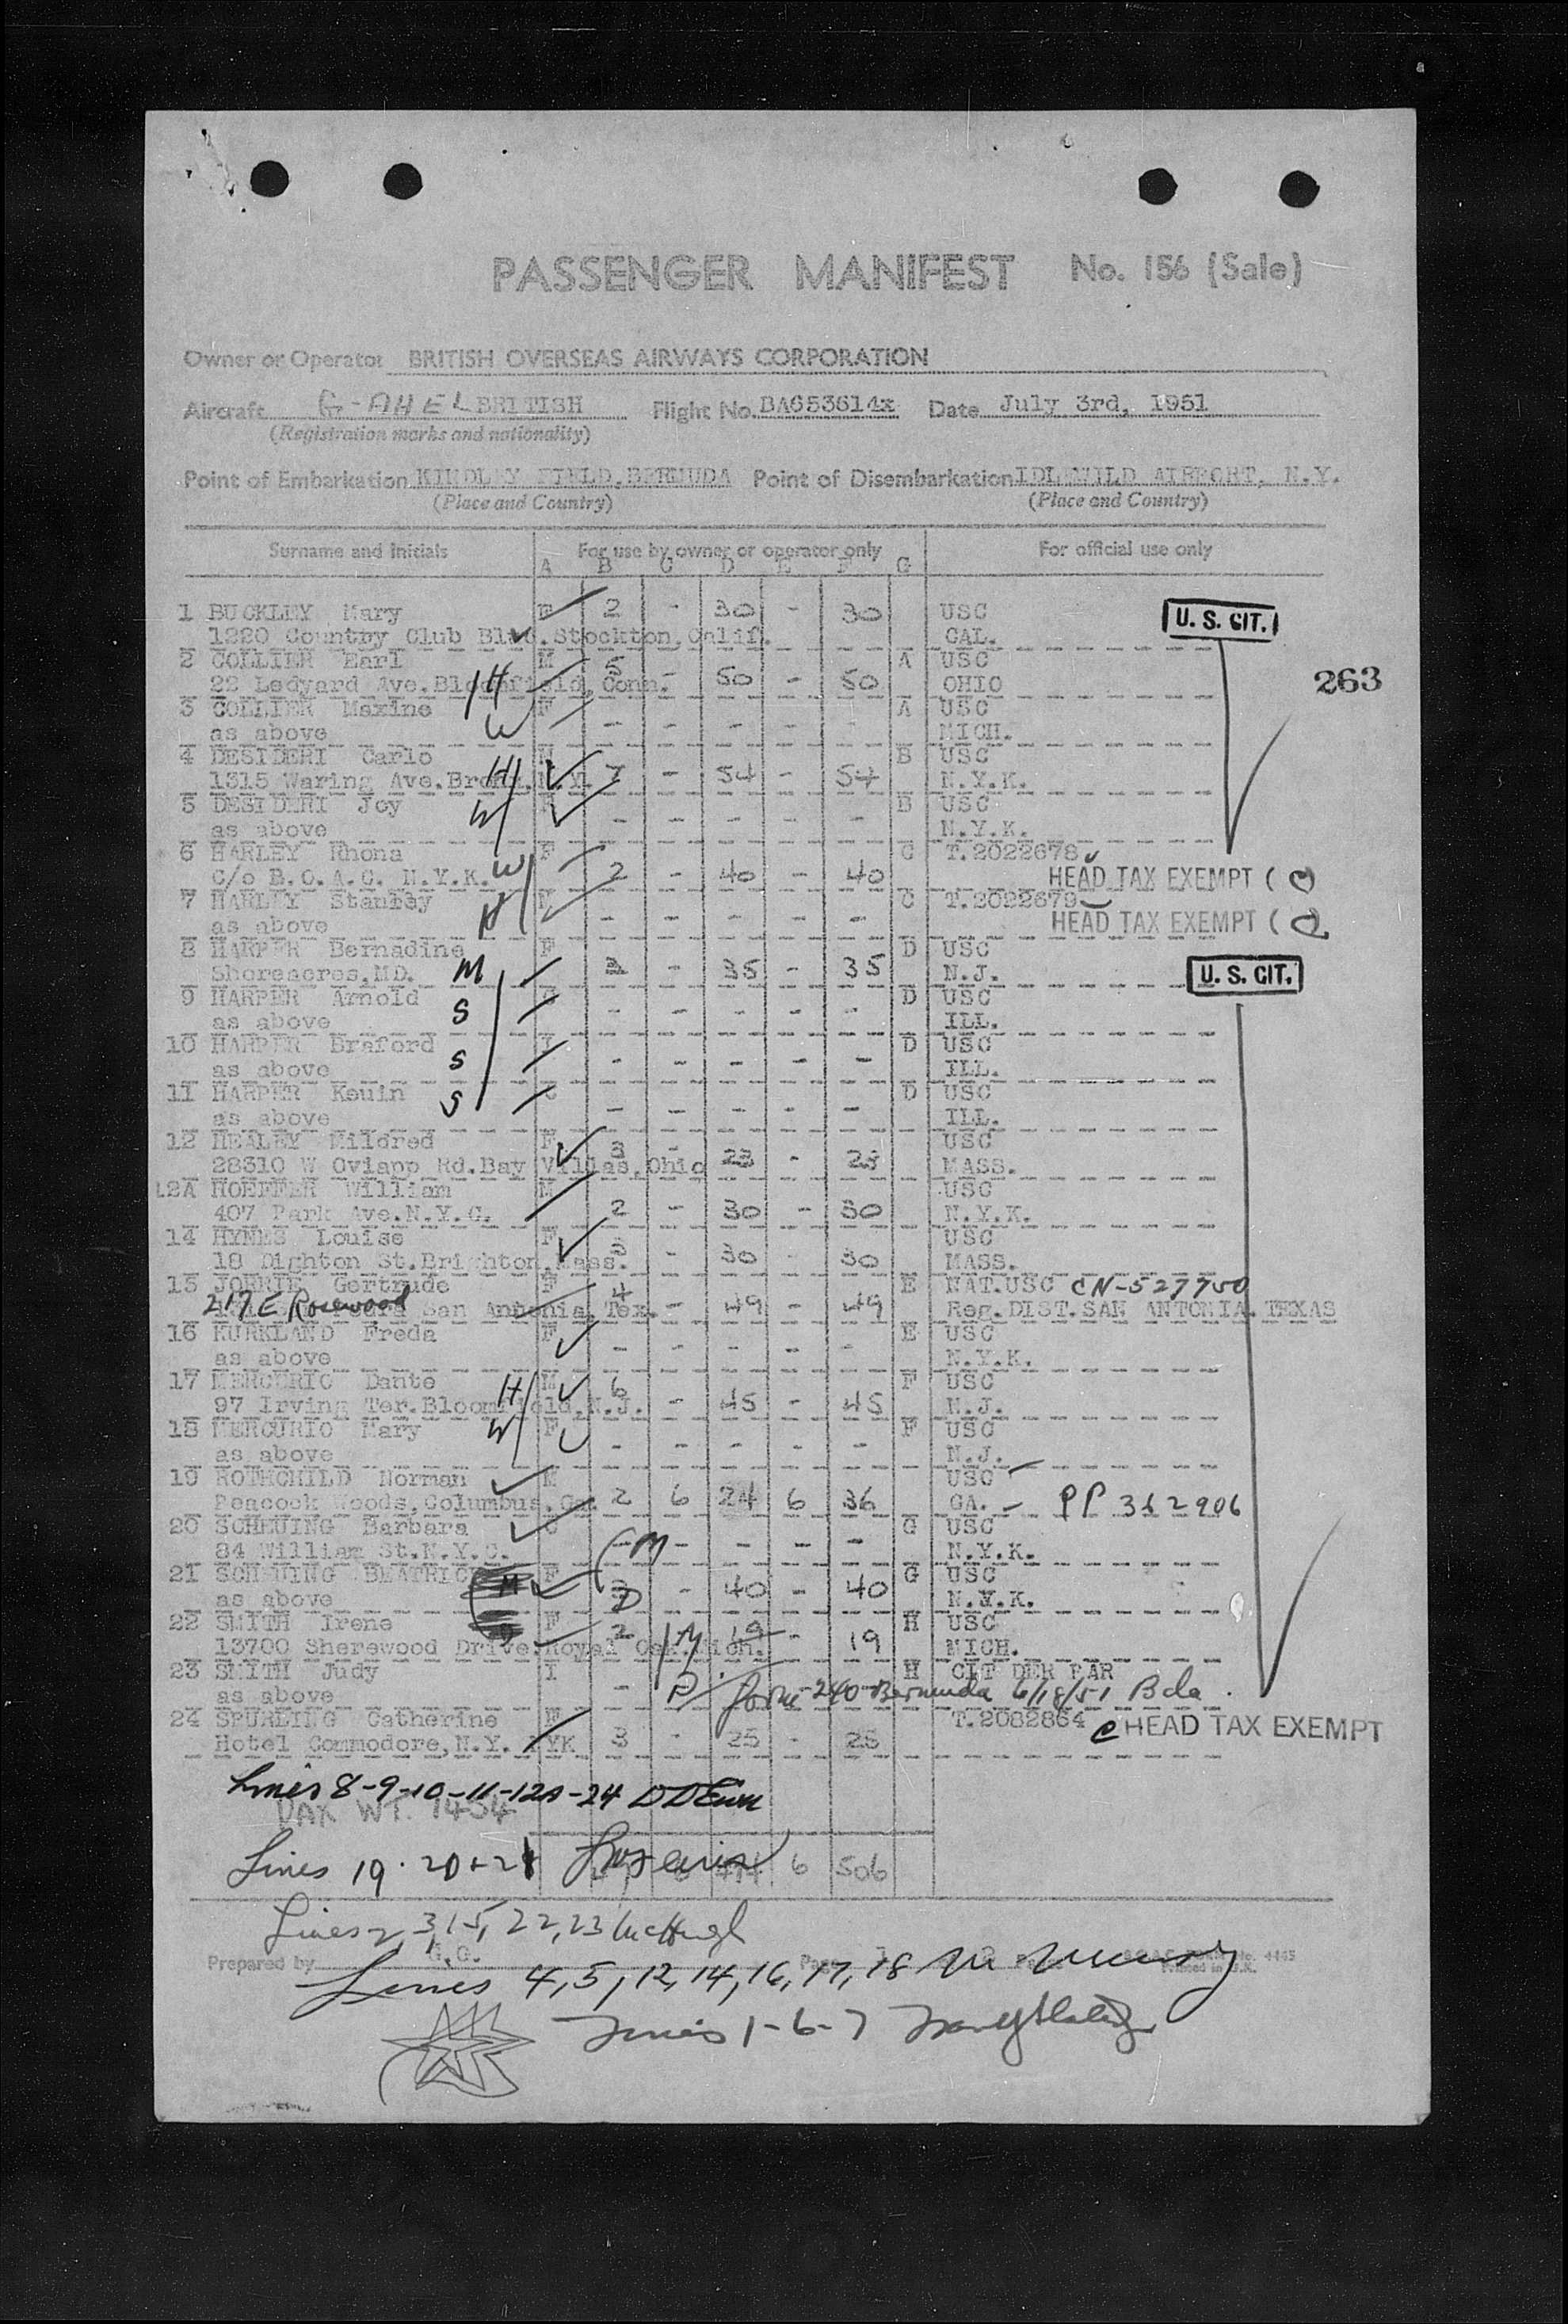 PASSENGER MANIFEST No. 156 (Sale)
Owner or Operator BRITISH OVERSEAS AIRWAYS CORPORATION
Aircraft G-AHEL BRITISH Flight No. BA653614x Date July 3rd, 1951
(Registration marks and nationality)
Point of Embarkation KINDLEY FIELD, BERMUDA Point of Disembarkation IDLEWILD AIRPORT, N.Y.
(Place and Country) (Place and Country)
Surname and Initials For use by owner or operator only For official use only
A B C D E F G
1 BUCKLEY Mary F 2 - 30 - 30 USC U. S. CIT.
1220 Country Club Blvd. Stockton, Calif. CAL.
2 COLLIER Earl M 5 A USC
22 Ledyard Ave. Bloomfield, Conn. H - 50 - 50 OHIO 263
3 COLLIER Maxine F A USC
as above W - - - - - MICH.
4 DESIDERI Carlo M B USC
1315 Waring Ave. Bronx, N.Y. H 7 - 54 - 54 N.Y.K.
5 DESIDERI Joy F B USC
as above W - - - - - N.Y.K.
6 HARLEY Rhona F C T.2022678
c/o B.O.A.C. N.Y.K. W 2 - 40 - 40 HEAD TAX EXEMPT (
7 HARLEY Stanley M C T.2022679
as above H - - - - - HEAD TAX EXEMPT (
8 HARPER Bernadine F D USC
Shoreacres, MD. M 3 - 35 - 35 N.J. U. S. CIT.
9 HARPER Arnold D USC
as above S - - - - - ILL.
10 HARPER Braford I D USC
as above S - - - - - ILL.
11 HARPER Keuin C D USC
as above S - - - - - ILL.
12 HEALEY Mildred F USC
28310 W Oviapp Rd. Bay Villas, Ohio 3 - 23 - 23 MASS.
12A HOEFFER William M USC
407 Park Ave. N.Y.C. 2 - 30 - 30 N.Y.K.
14 HYNES Louise F USC
18 Dighton St. Brighton, Mass. 3 - 30 - 30 MASS.
15 JOHRIE Gertrude F 4 E NAT.USC CN-527750
217 E Rosewood San Antonia, Tex. - 49 - 49 Reg. DIST. SAN ANTONIA. TEXAS
16 KURKLAND Freda F E USC
as above - - - - - N.Y.K.
17 MERCURIO Dante H M 6 F USC
97 Irving Ter. Bloomfield, N.J. - 45 - 45 N.J.
18 MERCURIO Mary W F F USC
as above - - - - - N.J.
19 ROTHCHILD Norman M USC
Peacock Woods, Columbus, Ga. 2 6 24 6 36 GA. - PP 362906
20 SCHEUING Barbara C G USC
84 William St. N.Y.C. M - - - - - N.Y.K.
21 SCHEUING BEATRICE F G USC
as above 3 D - 40 - 40 N.Y.K.
22 SMITH Irene F H USC
13700 Sherewood Drive. Royal Oak. Mich. 2 M 19 - 19 MICH.
23 SMITH Judy I H CIT DER PAR
as above - D 240 Bermuda 6/18/51 Bda
24 SPURLING Catherine F T.2082864 HEAD TAX EXEMPT
Hotel Commodore, N.Y. NYK 3 - 25 - 25
Lines 8-9-10-11-12A-24
PAX WT. 1454
Lines 19. 20+21 6 506
Lines 2, 3, 15, 22, 23 McHugh
Prepared by G.G. Page
Lines 4, 5, 12, 14, 16, 17, 18
Lines 1-6-7